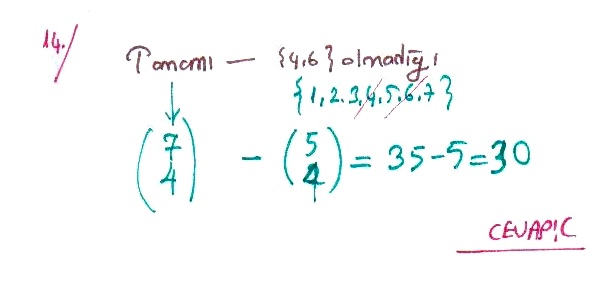 14.
Tamamı — {4,6} olmadığı
{1,2,3,4,5,6,7}
(7 4) - (5 4) = 35-5=30
CEVAP:C